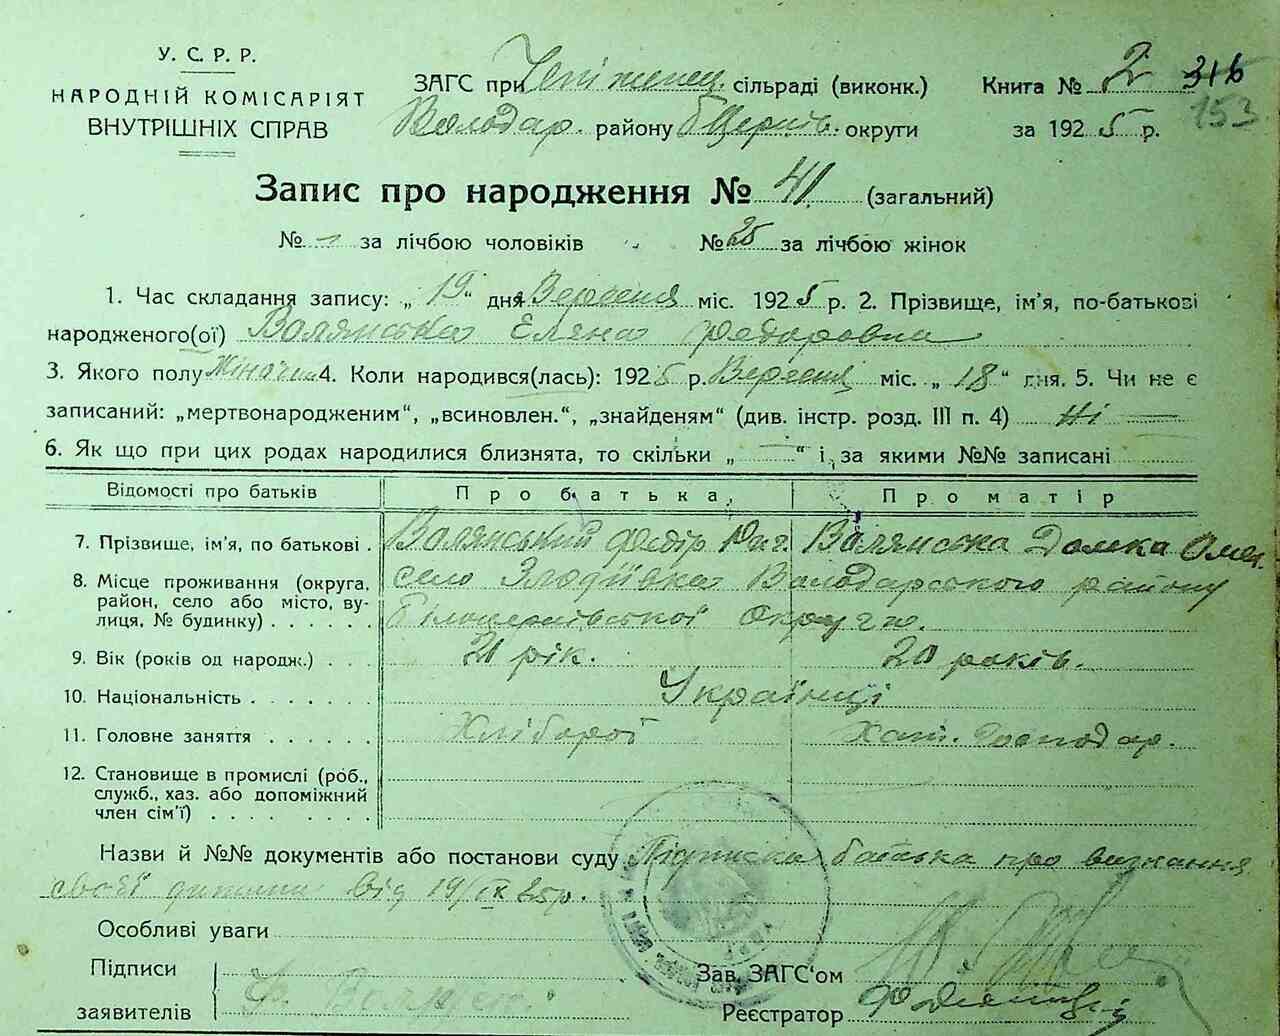 У. С. Р. Р.
НАРОДНІЙ КОМІСАРІЯТ
ВНУТРІШНІХ СПРАВ
ЗАГС при сільраді (виконк.)
Володар. району БЦерків. округи
Книга № 2 316
153
за 1925 р.
Запис про народження № 41 (загальний)
№ – за лічбою чоловіків № 25 за лічбою жінок
1. Час складання запису: „ 19 “ дня Вересня міс. 1925 р. 2. Прізвище, ім'я, по-батькові
народженого(ої) Валянська Еляна Федоровна
3. Якого полу 4. Коли народився(лась): 1925 р. Вересня міс. „ 18 “ дня. 5. Чи не є
записаний: „мертвонародженим“, „всиновлен.“, „знайденям“ (див. інстр. розд. III п. 4) Ні —
6. Як що при цих родах народилися близнята, то скільки „ — “ і за якими №№ записані
Відомості про батьків Про батька Про матір
7. Прізвище, ім'я, по батькові . Валянський Федір Валянська Домка Омел.
8. Місце проживання (округа, село Злодіївка Володарського району
район, село або місто, ву-
лиця, № будинку) . . . . . . Білоцерківської Округи.
9. Вік (років од народж.) . . . 21 рік. 20 років.
10. Національність . . . . . . . Українці
11. Головне заняття . . . . . . Хлібороб Хат. Господар.
12. Становище в промислі (роб.,
служб., хаз. або допоміжний
член сім'ї) . . . . . . . . .
Назви й №№ документів або постанови суду Підписка батька про визнання
своєї дитини від 19/IX 25р.
Особливі уваги
Підписи
заявителів Ф. Валянск
Зав. ЗАГС‘ом
Реєстратор